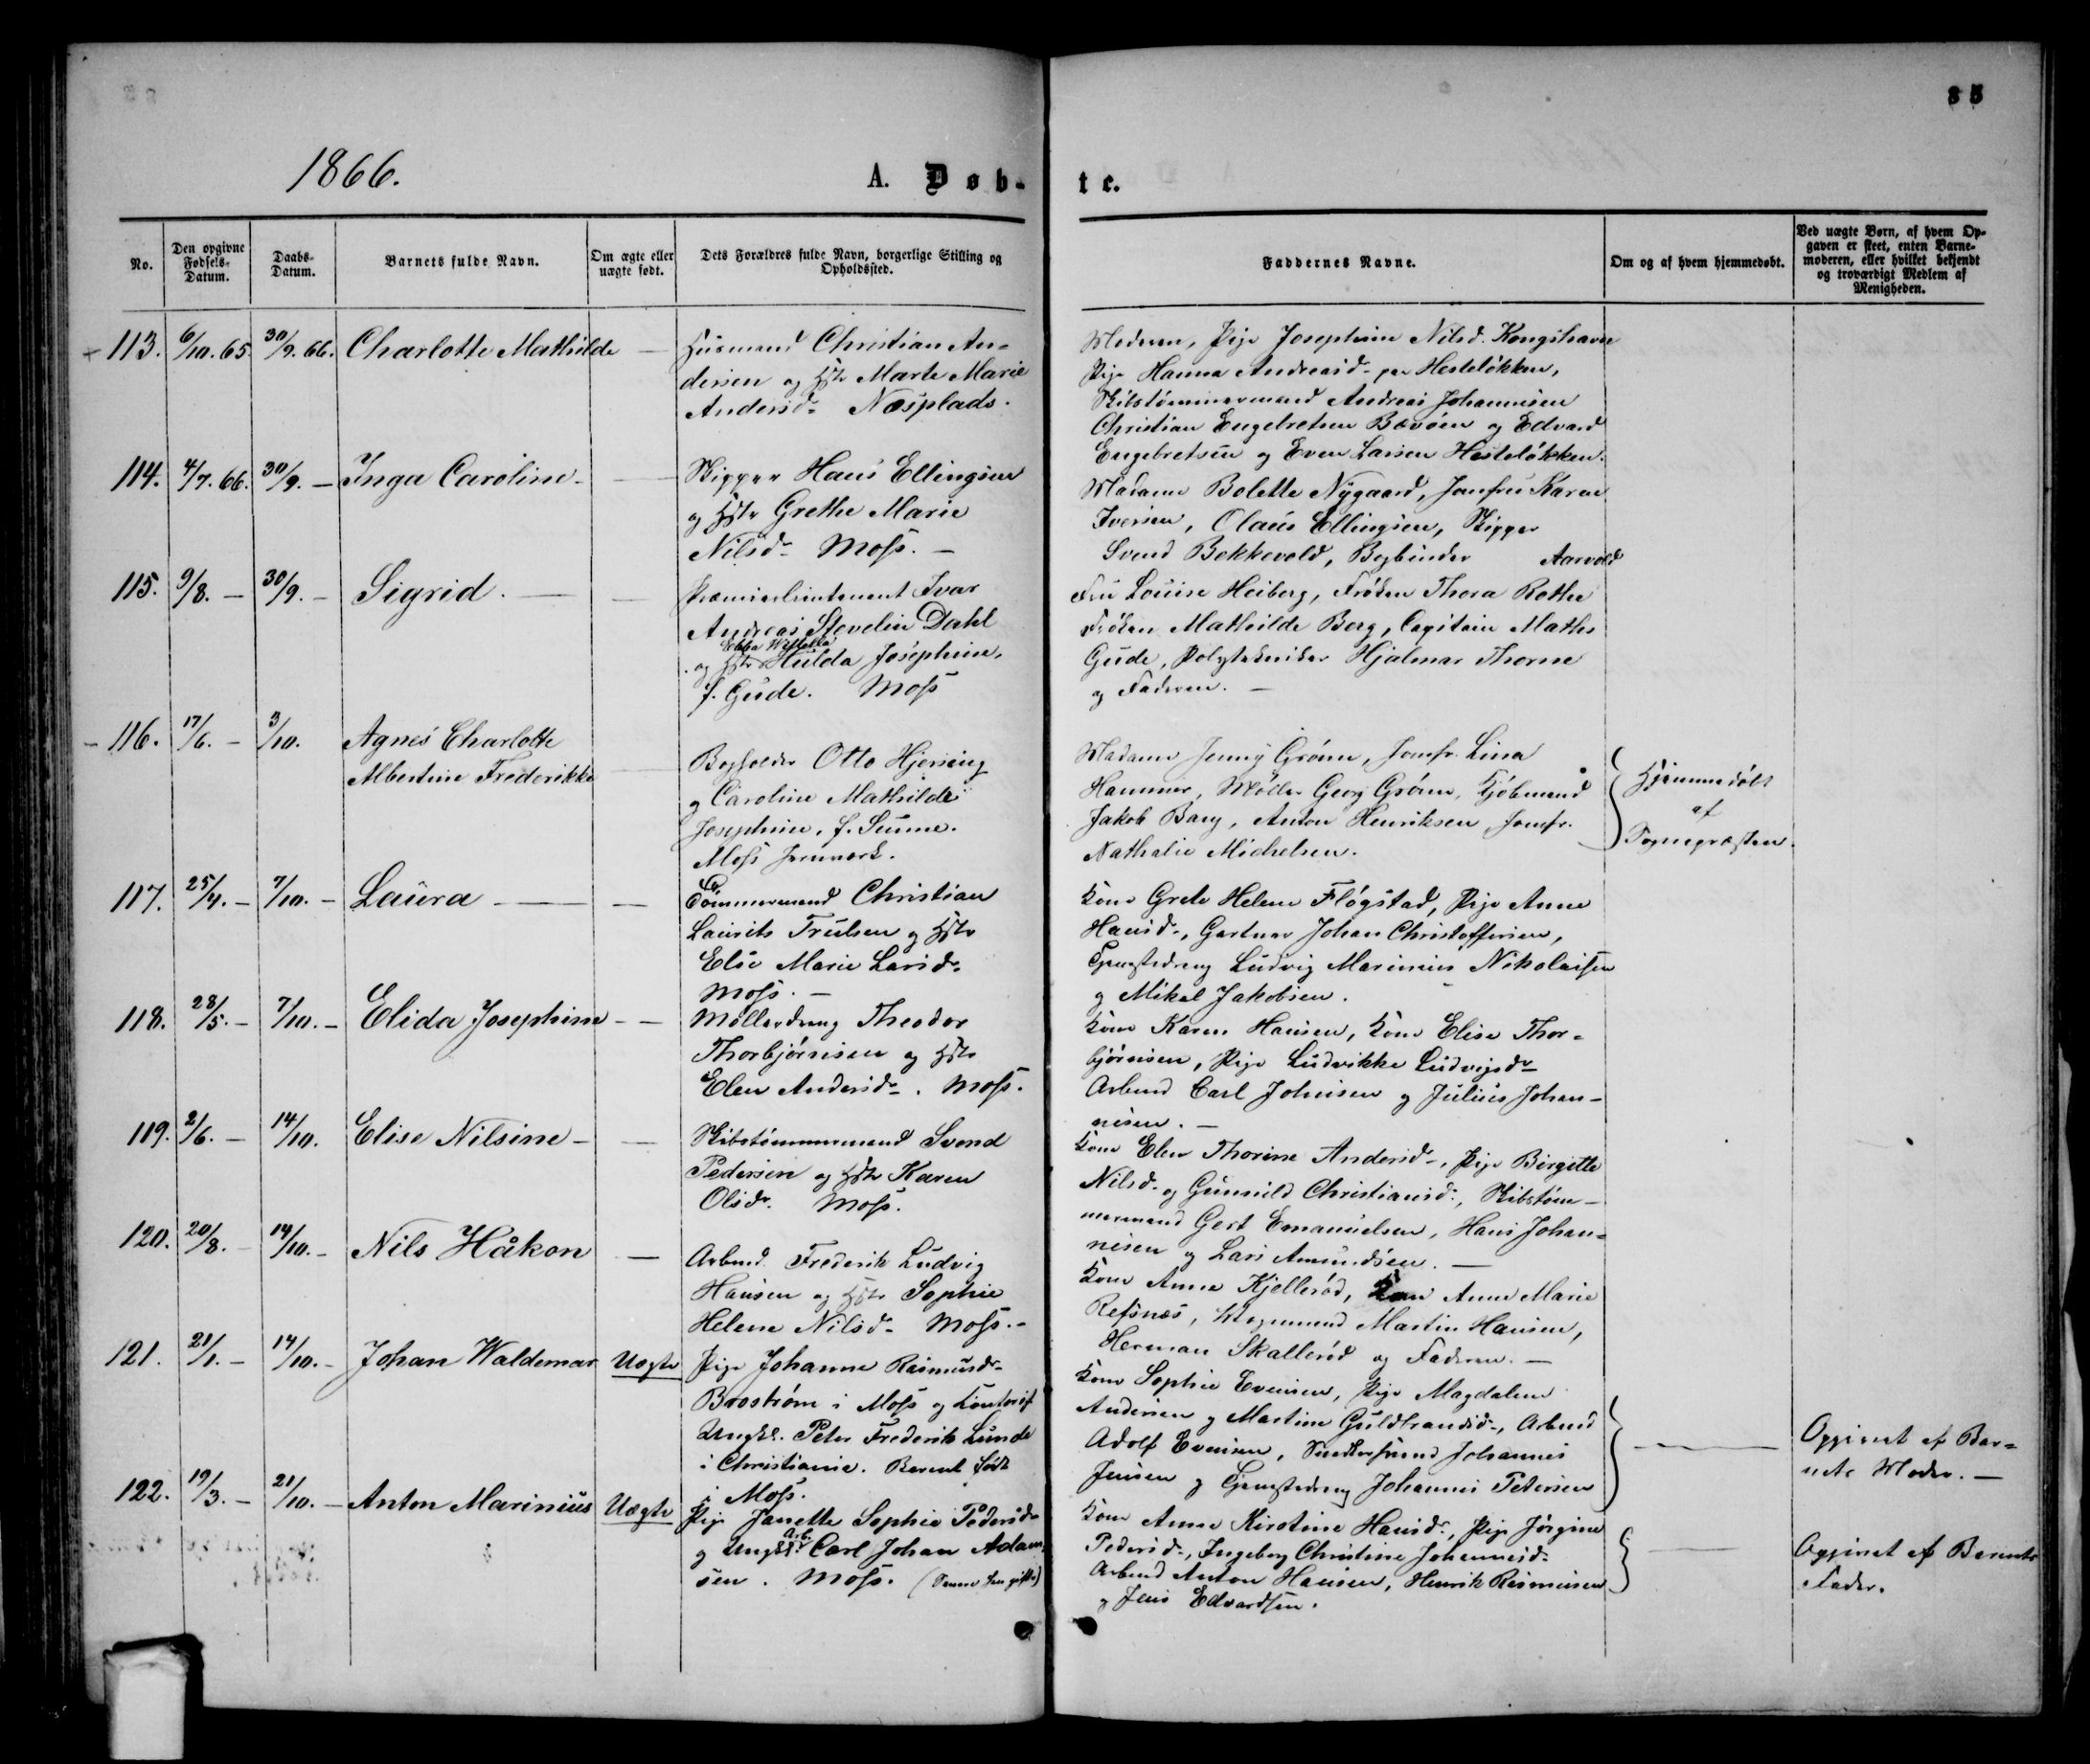 85
1866.
A. Døb-
te.
No.
Den opgivne Fødsels-Datum.
Daabs-Datum.
Barnets fulde Navn.
Om ægte eller uægte født.
Dets Forældres fulde Navn, borgerlige Stilling og Opholdssted.
Faddernes Navne.
Om og af hvem hjemmedøbt.
Ved uægte Børn, af hvem Opgaven er skeet, enten Barnemoderen, eller hvilket bekjendt og troværdigt Medlem af Menigheden.
113. 6/10. 65. 30/9. 66. Charlotte Mathilde —
Husmand Christian An-
dersen og Hstr Marte Marie
Andersd. Næsplads.
Moderen, Pige Josephine Nilsd. Kongshavn
Pige Hanna Andreasd. paa Hesteløkken,
Skibstømmermand Andreas Johannesen
Christian Engebretsen Bævøen og Edvard
Engebretsen og Even Larsen Hesteløkken.
114. 4/7. 66. 30/9. — Inga Caroline —
Skipper Hans Ellingsen
og Hstr Grethe Marie
Nilsd. Moss. —
Madame Bolette Nygaard, Jomfru Karen
Iversen, Olaus Ellingsen, Skipper
Svend Bekkevold, Bogbinder Aarvold
115. 9/8. — 30/9. — Sigrid. —
Premierlieutenant Ivar
Andreas Stovelin Dahl
og Hstr Ebba Hulda Josephine,
f. Gude. Moss
Fru Louise Heiberg, Frøken Thora Rothe
Frøken Mathilde Berg, Capitain Mathis
Gude, Polytekniker Hjalmar Thorne
og Faderen. —
116. 17/6. — 3/10. Agnes Charlotte
Albertine Frederikke
Bogholder Otto Hjersing
og Caroline Mathilde
Josephine, f. Sunne.
Moss Jernværk.
Madame Jenny Grønn, Jomfr. Lina
Hammer, Møller Georg Grønn, Kjøbmand
Jakob Bang, Anton Henriksen Jomfr.
Nathalie Michelsen.
Hjemmedøbt
af
Sognepræsten.
117. 25/4. — 7/10. — Laura —
Tømmermand Christian
Laurits Trulsen og Hstr
Else Marie Larsd.
Moss. —
Kone Grete Helene Fløgstad, Pige Anne
Hansd., Gartner Johan Christoffersen,
Tjenestedreng Ludvig Marinius Nikolaisen
og Mikal Jakobsen.
118. 28/5. — 7/10. — Elida Josephine —
Møllerdreng Theodor
Thorbjørnsen og Hstr
Elen Andersd. Moss.
Kone Karen Hansen, Kone Elise Thor-
bjørnsen, Pige Ludvikke Ludvigsd.
Arbmd Carl Johnsen og Julius Johan-
nesen. —
119. 2/6. — 14/10. Elise Nilsine —
Skibstømmermand Svend
Pedersen og Hstr Karen
Olsd. Moss.
Kone Elen Thorine Andersd., Pige Birgitte
Nilsd. og Gunnild Christiansd., Skibstøm-
mermand Gert Emanuelsen, Hans Johan-
nesen og Lars Amundsen. —
120. 20/8. — 14/10. — Nils Håkon —
Arbmd. Frederik Ludvig
Hansen og Hstr Sophie
Helene Nilsd. Moss. —
Kone Anne Kjellerød, Kone Anne Marie
Refsnæs, Martin Hansen,
Herman Skallerød og Faderen. —
121. 21/1. — 14/10. — Johan Waldemar Uægte
Pige Johanne Rasmusd.
Brostrøm i Moss og Kontorist
Ungk. Peter Frederik Lunde
i Christiania. Barnet født
i Moss.
Kone Sophie Evensen, Pige Magdalene
Andersen og Martine Guldbrandsd., Arbmd
Adolf Evensen, Johannes
Jensen og Tjenestedreng Johannes Petersen
Opgivet af Bar-
nets Moder. —
122. 19/3. — 21/10. — Anton Marinius Uægte
Pige Janette Sophie Pedersd.
og Ungk. Arb. Carl Johan Adam
sen. Moss.
Kone Anne Kirstine Hansd., Pige Jørgine
Pedersd., Ingeborg Christine Johannesd.
Arbmd Anton Hansen, Henrik Rasmusen
og Jens Edvardsen.
Opgivet af Barnets
Fader.